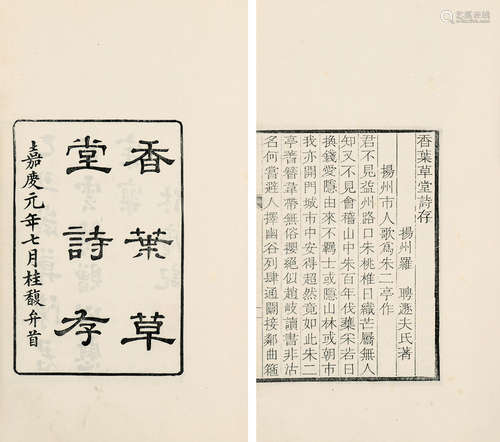 香葉草
堂詩存
嘉慶元年七月桂馥弁首
香葉草堂詩存
揚州羅 聘遯夫氏著
揚州市人歌爲朱二亭作
君不見益州路口朱桃椎日織芒屩無人
知又不見會稽山中朱百年伐藁采若日
換錢愛隱由來不羈士或隱山林或朝市
我亦開門城市中安得超然竟如此朱二
亭簪韋帶無俗攖絕似趙岐讀書非沽
名何嘗避人擇幽谷列肆通闤接鄰曲箍